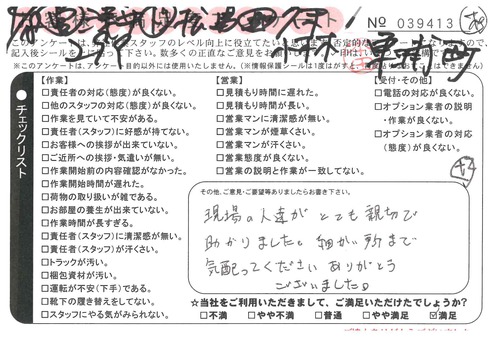 № 039413
チェックリスト
【作業】
□責任者の対応(態度)が良くない。
□他のスタッフの対応(態度)が良くない。
□作業を見ていて不安がある。
□責任者(スタッフ)に好感が持てない。
□お客様への挨拶が出来ていない。
□ご近所への挨拶・気遣いが無い。
□作業開始前の内容確認がなかった。
□作業開始時間が遅れた。
□荷物の取り扱いが雑である。
□お部屋の養生が出来ていない。
□作業時間が長すぎる。
□責任者(スタッフ)に清潔感が無い。
□責任者(スタッフ)が汗くさい。
□トラックが汚い。
□梱包資材が汚い。
□運転が不安(下手)である。
□靴下の履き替えをしてない。
□スタッフにやる気がみられない。
【営業】
□見積もり時間に遅れた。
□見積もり時間が長い。
□営業マンに清潔感が無い。
□営業マンが煙草くさい。
□営業マンが汗くさい。
□営業態度が良くない。
□営業の説明と作業が一致してない。
【受付・その他】
□電話の対応が良くない。
□オプション業者の説明
・作業が良くない。
□オプション業者の対応
(態度)が良くない。
その他、ご意見・ご要望等ありましたらお書き下さい。
現場の人達が とても親切で
助かりました。細かい所まで
気配ってくださいありがとう
ございました。
☆当社をご利用いただきまして、ご満足いただけたでしょうか?
□不満 □やや不満 □普通 □やや満足 ☑満足